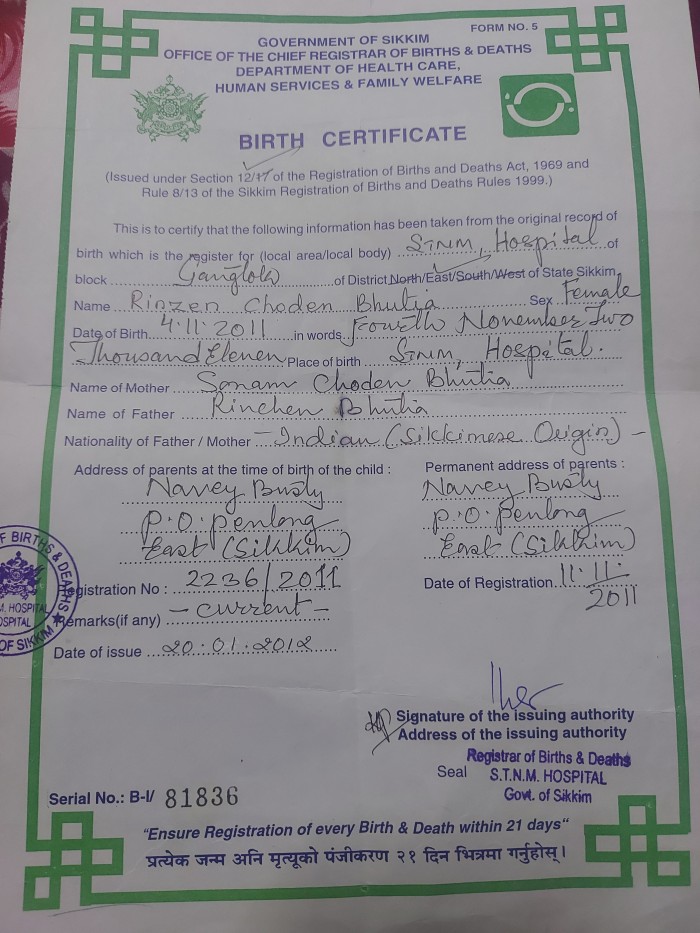 FORM NO. 5
GOVERNMENT OF SIKKIM
OFFICE OF THE CHIEF REGISTRAR OF BIRTHS & DEATHS
DEPARTMENT OF HEALTH CARE,
HUMAN SERVICES & FAMILY WELFARE
BIRTH CERTIFICATE
(Issued under Section 12/17 of the Registration of Births and Deaths Act, 1969 and
Rule 8/13 of the Sikkim Registration of Births and Deaths Rules 1999.)
This is to certify that the following information has been taken from the original record of
birth which is the register for (local area/local body) STNM, Hospital of
block Gangtok of District North/East/South/West of State Sikkim
Name Rinzen Choden Bhutia Sex Female
Date of Birth 4.11.2011 in words Fourth November Two
Thousand Eleven Place of birth STNM, Hospital.
Name of Mother Sonam Choden Bhutia
Name of Father Rinchen Bhutia
Nationality of Father / Mother - Indian (Sikkimese Origin) -
Address of parents at the time of birth of the child :
Navey Busty
P.O. Penlong
East (Sikkim)
Permanent address of parents :
Navey Busty
P.O. Penlong
East (Sikkim)
Registration No : 2236/2011
Date of Registration 11.11.2011
Remarks(if any) - current -
Date of issue 20.01.2012
F BIRTHS & DEATHS
M. HOSPITAL
OSPITAL
OF SIKKIM
Signature of the issuing authority
Address of the issuing authority
Registrar of Births & Deaths
Seal S.T.N.M. HOSPITAL
Govt. of Sikkim
Serial No.: B-I/ 81836
"Ensure Registration of every Birth & Death within 21 days"
प्रत्येक जन्म अनि मृत्यूको पंजीकरण २१ दिन भित्रमा गर्नुहोस्।